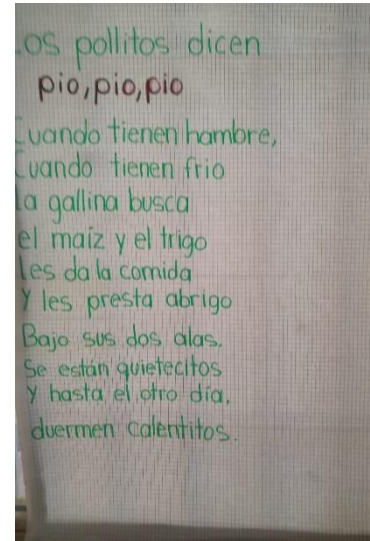 Los pollitos dicen
pio, pio, pio
Cuando tienen hambre,
Cuando tienen frio
la gallina busca
el maíz y el trigo
les da la comida
y les presta abrigo
Bajo sus dos alas.
Se están quietecitos
y hasta el otro día.
duermen calentitos.